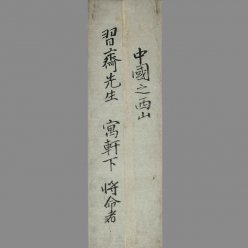 中國之西山
習齋先生 寓軒下 將命者